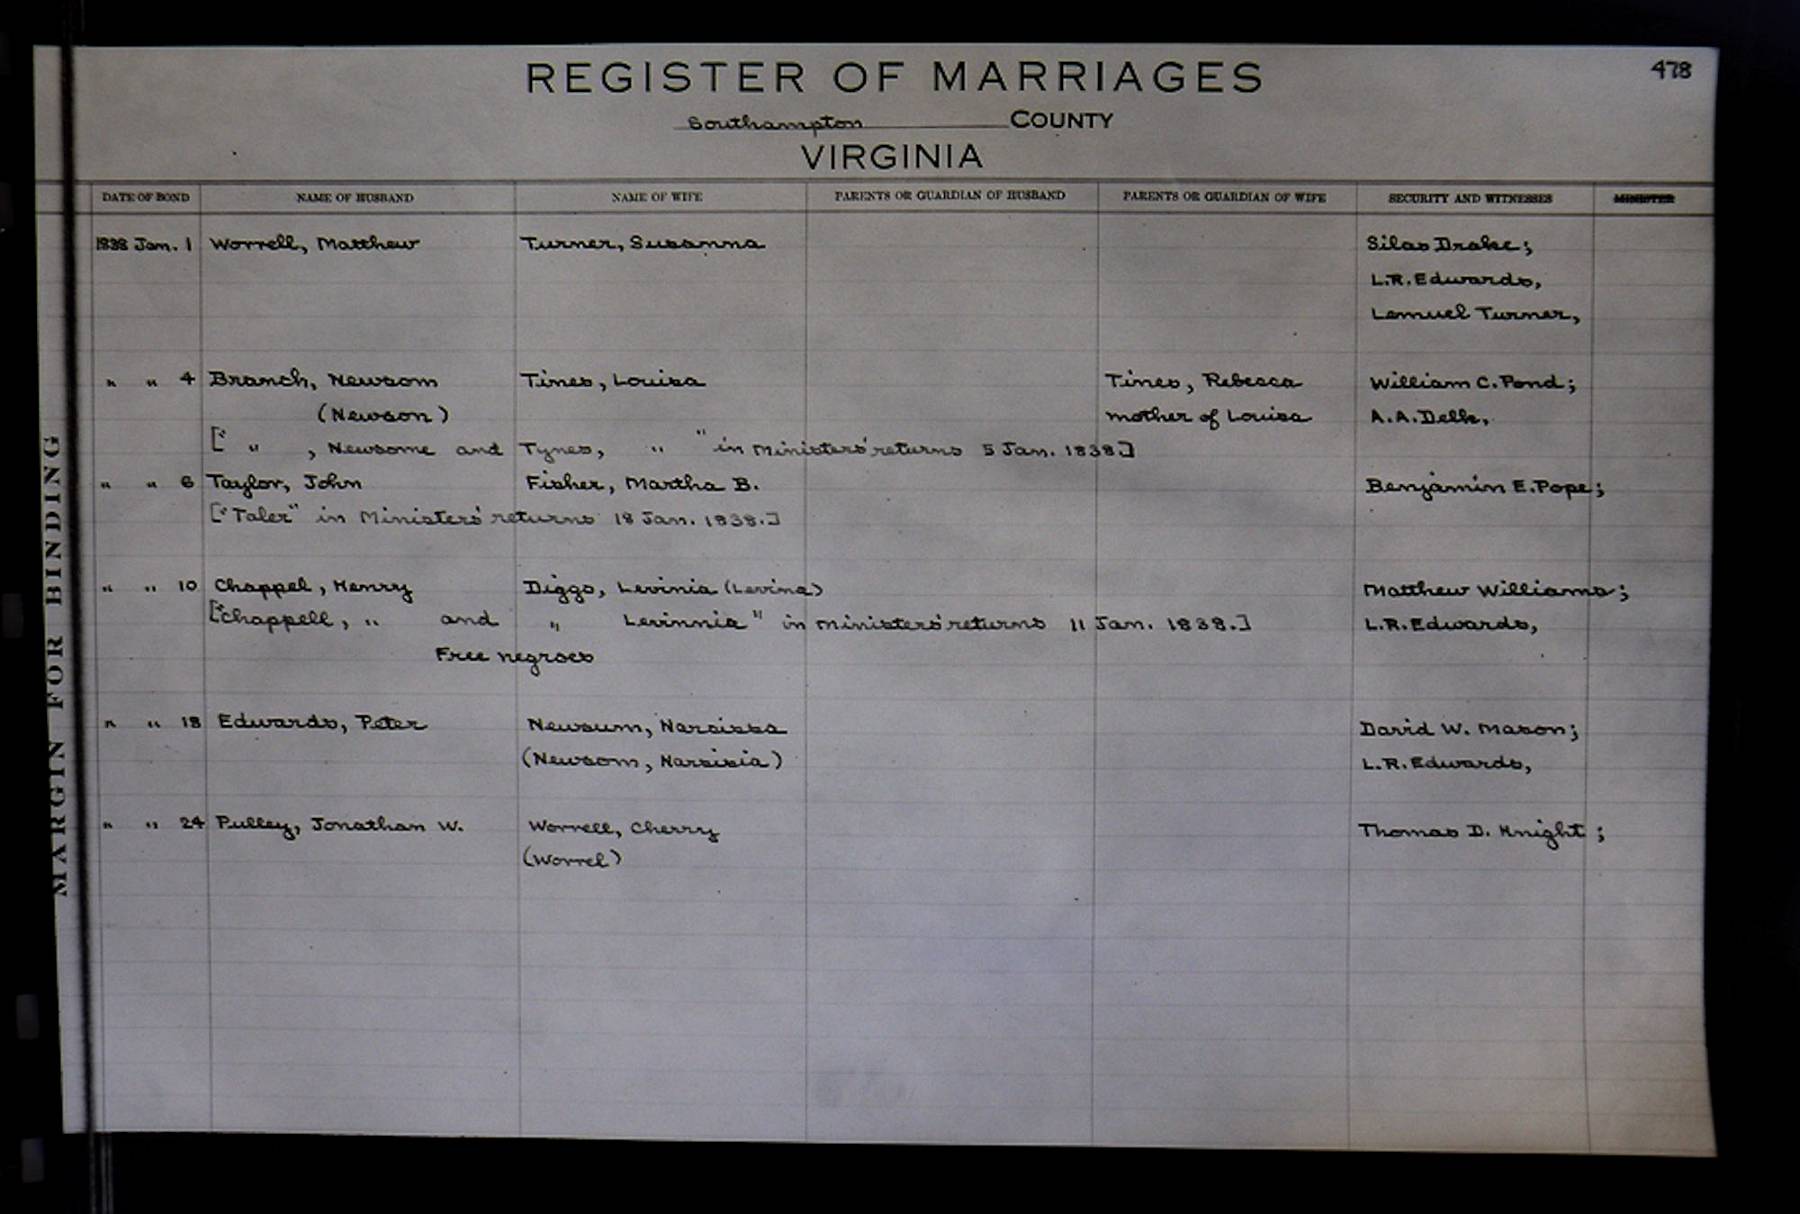 478
REGISTER OF MARRIAGES
Southampton COUNTY
VIRGINIA
DATE OF BOND NAME OF HUSBAND NAME OF WIFE PARENTS OR GUARDIAN OF HUSBAND PARENTS OR GUARDIAN OF WIFE SECURITY AND WITNESSES MINISTER
1838 Jan. 1 Worrell, Matthew Turner, Susanna Silas Drake;
L.R. Edwards,
Lemuel Turner,
" " 4 Branch, Newsom Tines, Louisa Tines, Rebecca William C. Pond;
(Newson) mother of Louisa A.A. Delk,
[" " , Newsome and Tynes, " " in Ministers' returns 5 Jan. 1838.]
" " 6 Taylor, John Fisher, Martha B. Benjamin E. Pope;
["Taler" in Ministers' returns 18 Jan. 1838.]
" " 10 Chappel, Henry Diggs, Levinia (Levina) Matthew Williams;
["Chappell, " and " Levinnia" in Ministers' returns 11 Jan. 1838.] L.R. Edwards,
Free negroes
" " 18 Edwards, Peter Newsum, Narsissa David W. Mason;
(Newsom, Narsisia) L.R. Edwards,
" " 24 Pulley, Jonathan W. Worrell, Cherry Thomas D. Knight;
(Worrel)
MARGIN FOR BINDING